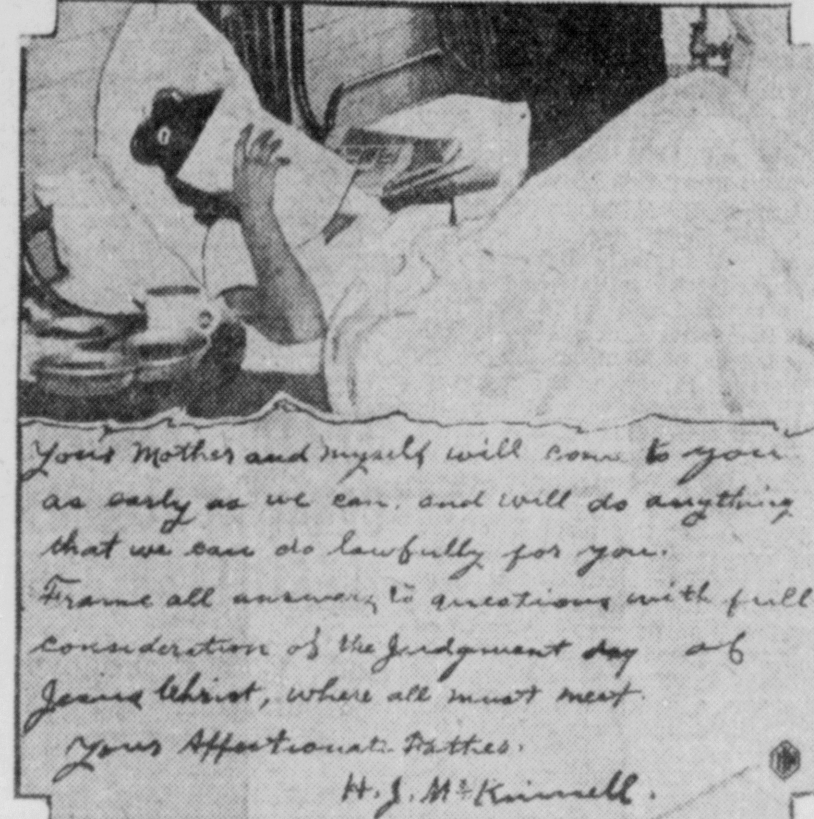 Your Mother and myself will come to you
as early as we can. and will do anything
that we can do lawfully for you.
Frame all answers to questions with full
consideration of the Judgment day of
Jesus Christ, where all must meet.
Your Affectionate Father.
H. J. McKinnell.